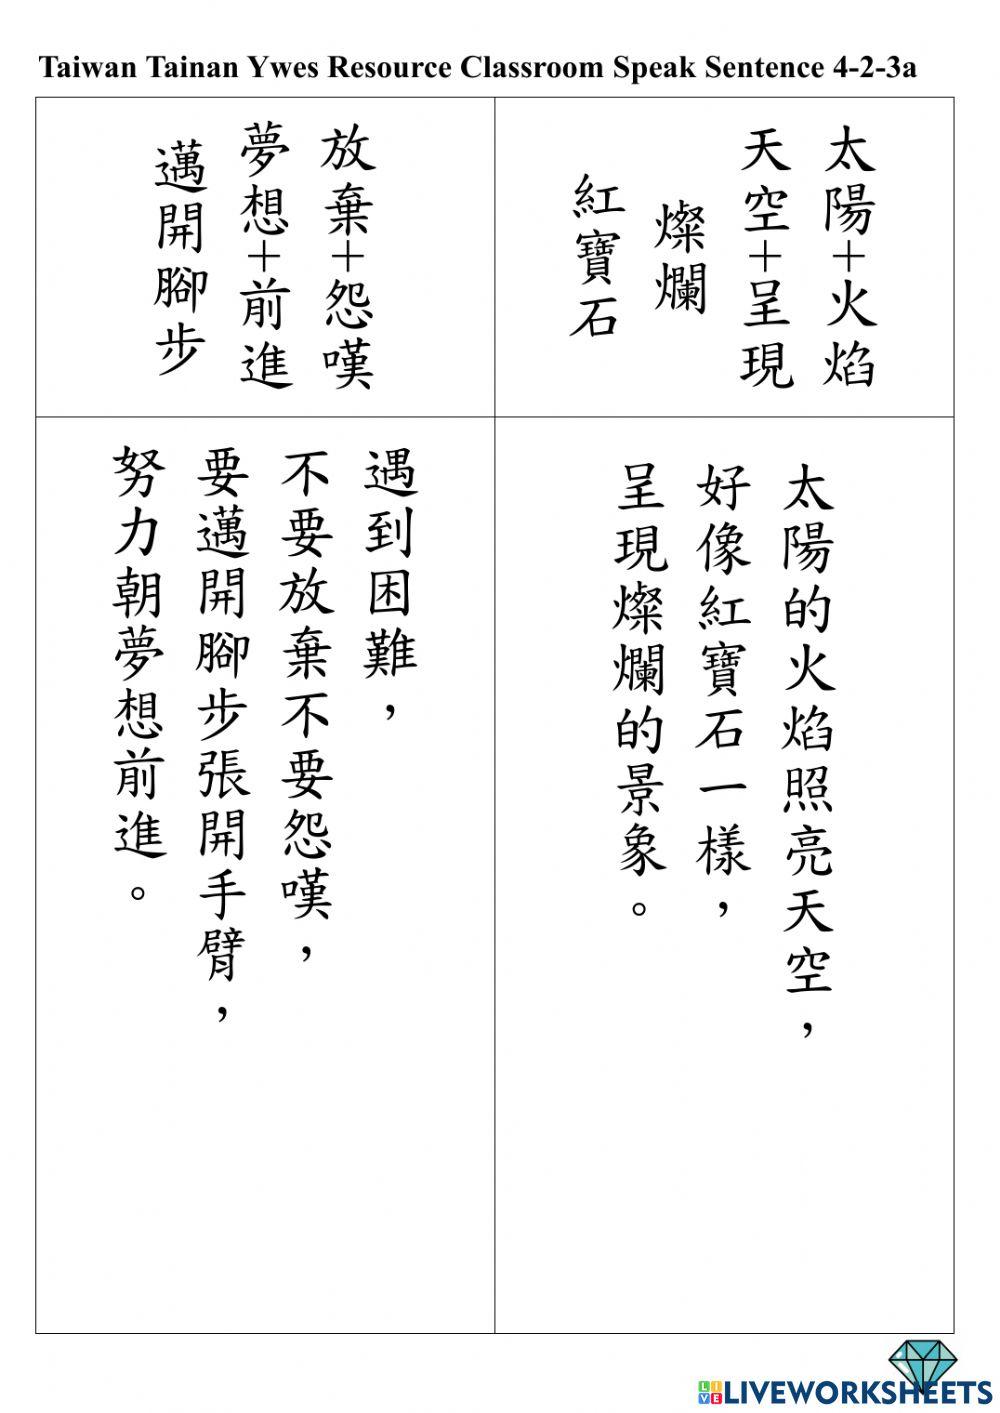 Taiwan Tainan Ywes Resource Classroom Speak Sentence 4-2-3a
太陽+火焰
天空+呈現
燦爛
紅寶石
放棄+怨嘆
夢想+前進
邁開腳步
太陽的火焰照亮天空，
好像紅寶石一樣，
呈現燦爛的景象。
遇到困難，
不要放棄不要怨嘆，
要邁開腳步張開手臂，
努力朝夢想前進。
LIVEWORKSHEETS